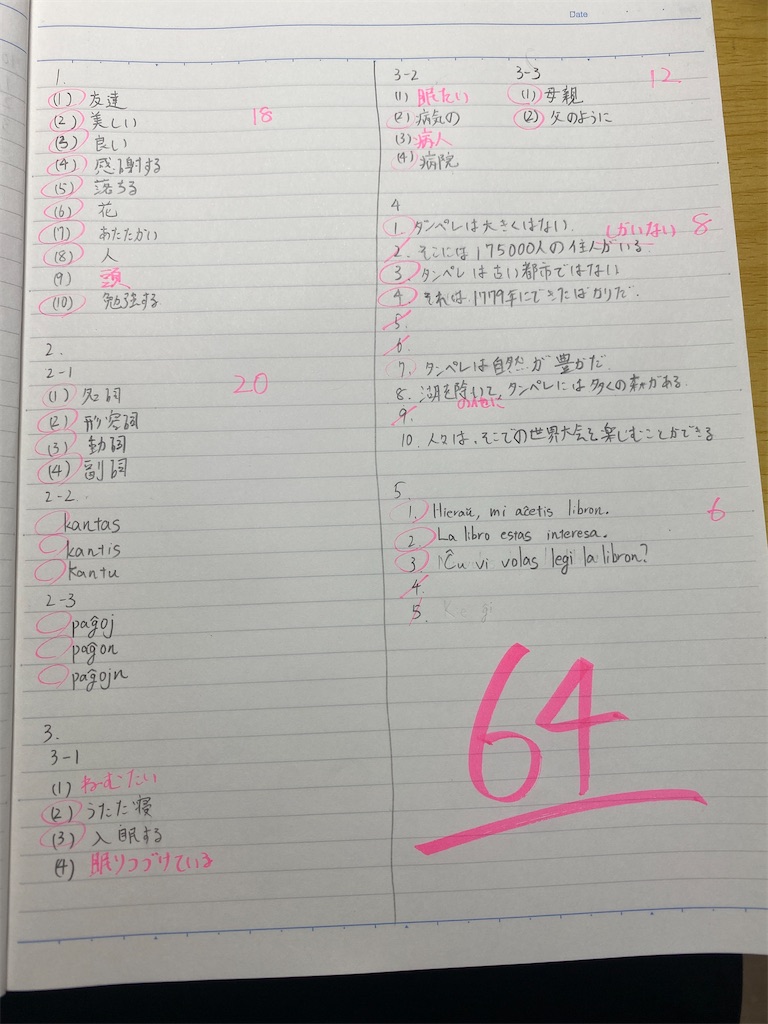 Date
1.
(1) 友達
(2) 美しい
18
(3) 良い
(4) 感謝する
(5) 落ちる
(6) 花
(7) あたたかい
(8) 人
(9) 頭
(10) 勉強する
2.
2-1
(1) 名詞
20
(2) 形容詞
(3) 動詞
(4) 副詞
2-2.
kantas
kantis
kantu
2-3
paĝoj
paĝon
paĝojn
3.
3-1
(1) ねーむたい
(2) うたた寝
(3) 入眠する
(4) 眠りつづけている
3-2
(1) 眠たい
(2) 病気の
(3) 病人
(4) 病院
3-3
12
(1) 母親
(2) 父のように
4
1. タンペレは大きくはない.
しかいない 8
2. そこには175000人の住人がいる.
3. タンペレは古い都市ではない
4. それは1779年にできたばかりだ.
5.
6.
7. タンペレは自然が豊かだ.
8. 湖を除いて、タンペレには多くの森がある.
の他に
9.
10. 人々は、そこでの世界大会を楽しむことができる
5.
1. Hieraŭ, mi aĉetis libron.
6
2. La libro estas interesa.
3. Ĉu vi volas legi la libron?
4.
5.
64